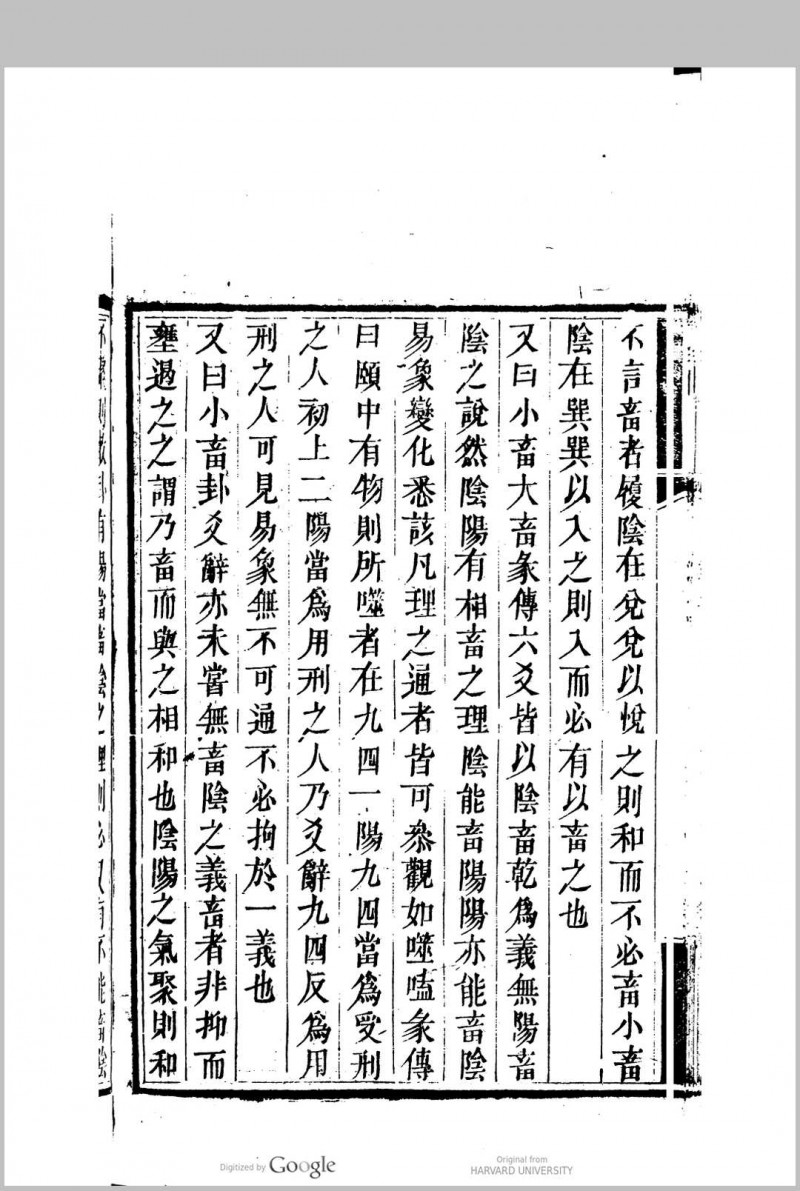 不言畜者履陰在兌兌以悅之則和而不必畜小畜
陰在巽巽以入之則入而必有以畜之也
又曰小畜大畜彖傳六爻皆以陰畜乾爲義無陽畜
陰之說然陰陽有相畜之理陰能畜陽陽亦能畜陰
易象變化悉該凡理之通者皆可叅觀如噬嗑彖傳
曰頤中有物則所噬者在九四一陽九四當爲受刑
之人初上二陽當爲用刑之人乃爻辭九四反爲用
刑之人可見易象無不可通不必拘於一義也
又曰小畜卦爻辭亦未嘗無畜陰之義畜者非抑而
壅遏之之謂乃畜而與之相和也陰陽之氣聚則和
有陽當畜陰之理則必又有不能畜陰
Digitized by Google
Original from
HARVARD UNIVERSITY